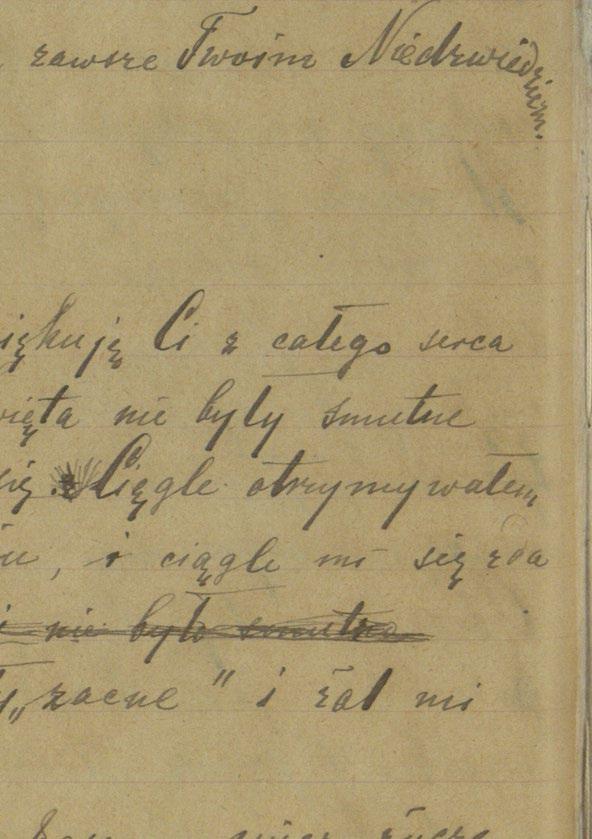 zawsze Twoim Niedzwiedziem.
iękuję Ci z całego serca
więta nie były smutne
się. Ciągle otrzymywałem
iu, i ciągle mi się zda
i nie było smutno
ty „zacne" i żal mi